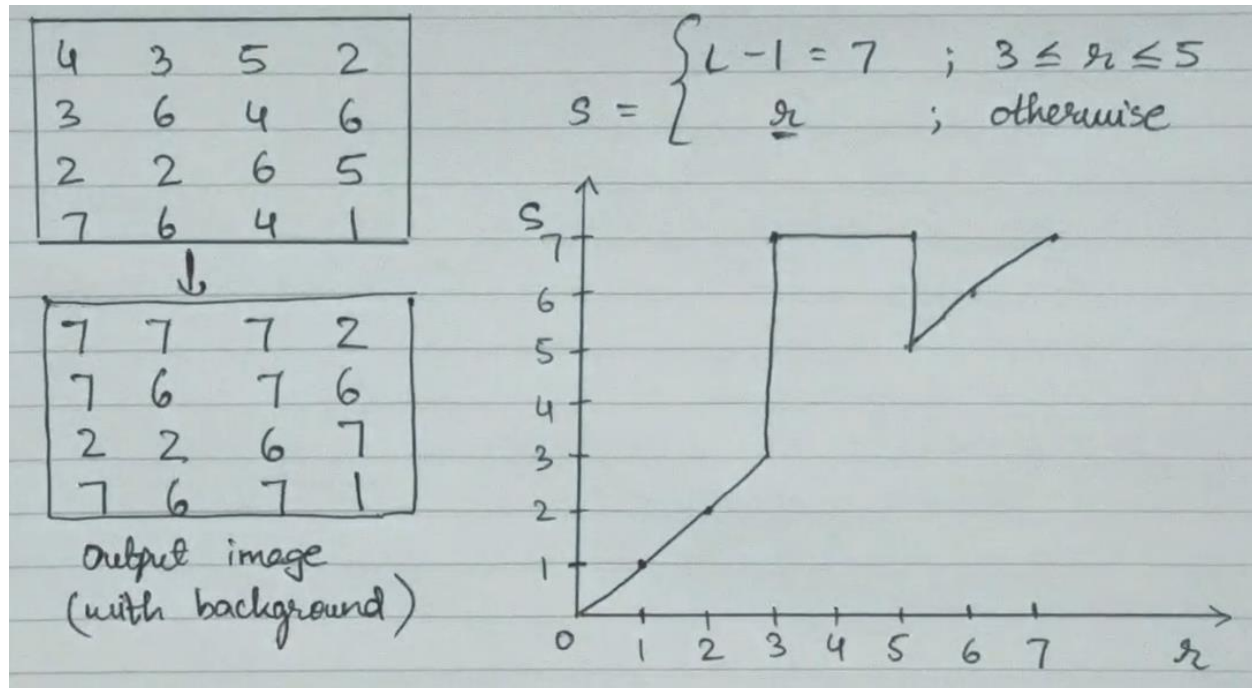 4 3 5 2
3 6 4 6
2 2 6 5
7 6 4 1
↓
7 7 7 2
7 6 7 6
2 2 6 7
7 6 7 1
output image
(with background)
s = { L-1 = 7 ; 3 ≤ r ≤ 5
r ; otherwise
S
7
6
5
4
3
2
1
0 1 2 3 4 5 6 7 r